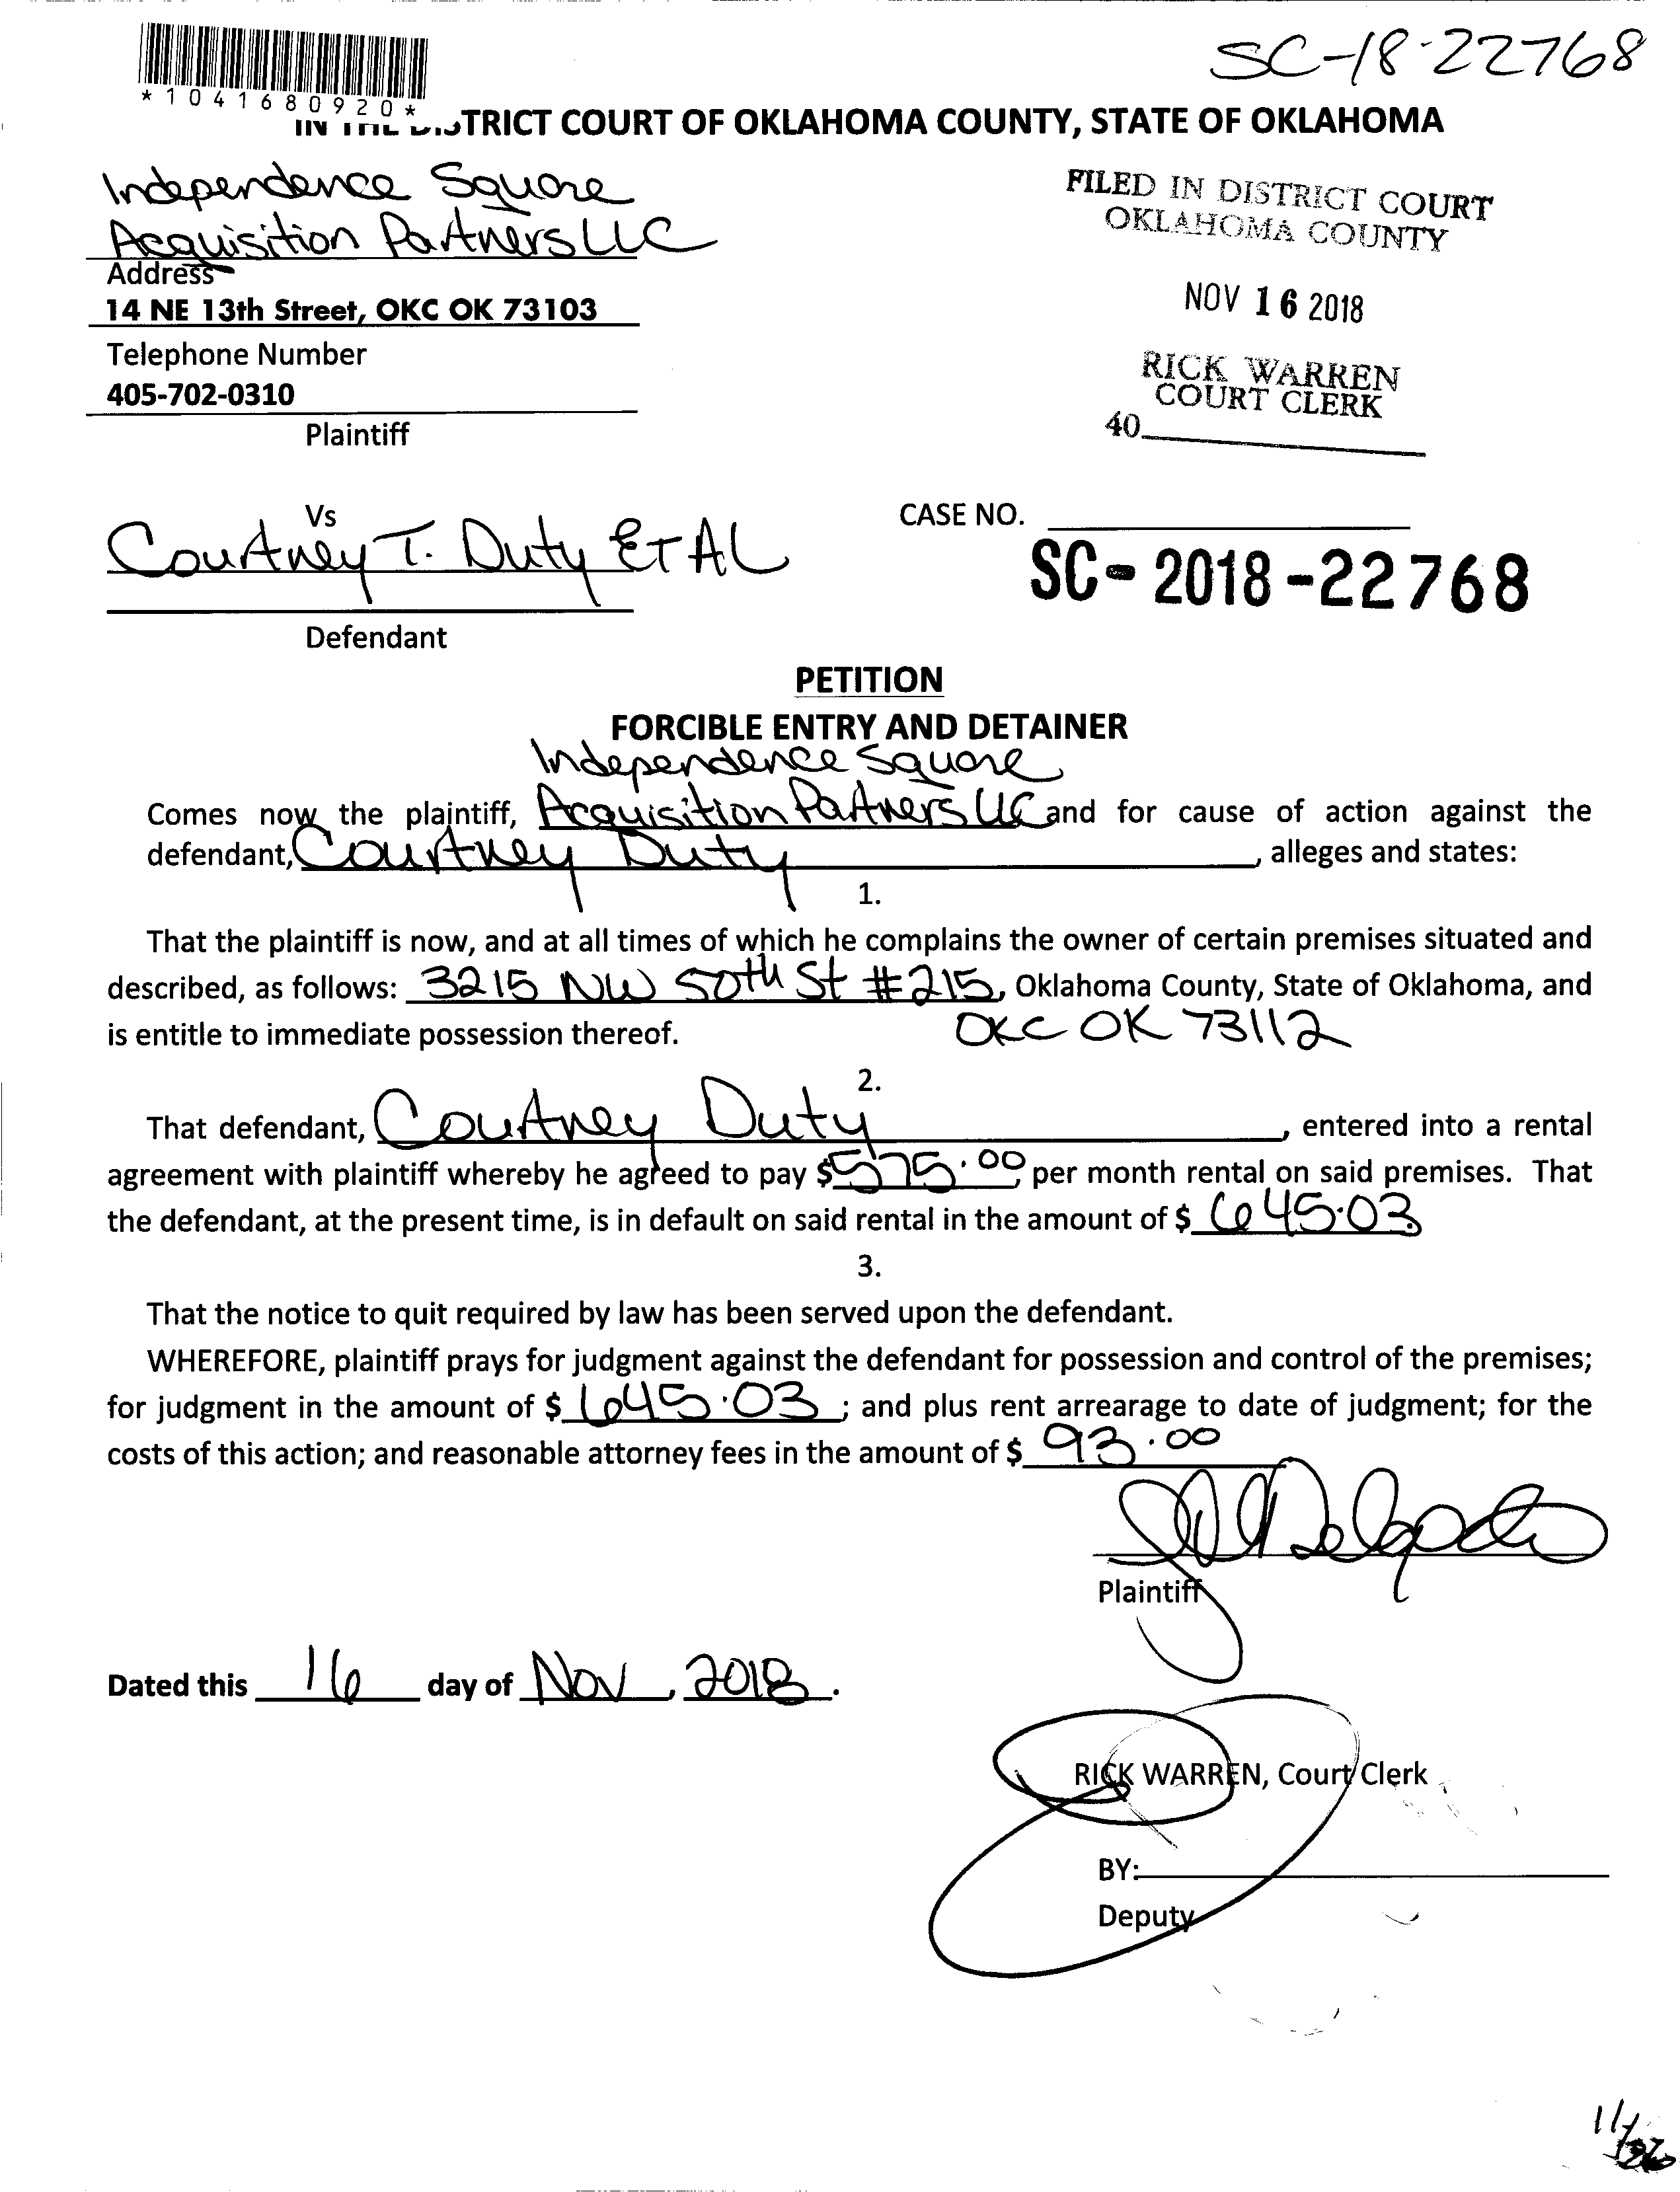 SC-18-22768
*1041680920*
IN THE DISTRICT COURT OF OKLAHOMA COUNTY, STATE OF OKLAHOMA
Independence Square
Acquisition Partners LLC
Address
14 NE 13th Street, OKC OK 73103
Telephone Number
405-702-0310
Plaintiff
FILED IN DISTRICT COURT
OKLAHOMA COUNTY
NOV 16 2018
RICK WARREN
COURT CLERK
40
Vs
Courtney T. Duty ET AL
Defendant
CASE NO.
SC-2018-22768
PETITION
FORCIBLE ENTRY AND DETAINER
Independence Square
Comes now the plaintiff, Acquisition Partners LLC and for cause of action against the
defendant, Courtney Duty, alleges and states:
1.
That the plaintiff is now, and at all times of which he complains the owner of certain premises situated and
described, as follows: 3215 NW 50th St #215, Oklahoma County, State of Oklahoma, and
is entitle to immediate possession thereof. OKC OK 73112
2.
That defendant, Courtney Duty, entered into a rental
agreement with plaintiff whereby he agreed to pay $575.00, per month rental on said premises. That
the defendant, at the present time, is in default on said rental in the amount of $ 645.03
3.
That the notice to quit required by law has been served upon the defendant.
WHEREFORE, plaintiff prays for judgment against the defendant for possession and control of the premises;
for judgment in the amount of $ 645.03; and plus rent arrearage to date of judgment; for the
costs of this action; and reasonable attorney fees in the amount of $ 93.00
Delgado
Plaintiff
Dated this 16 day of Nov, 2018.
RICK WARREN, Court Clerk
BY:
Deputy
11/